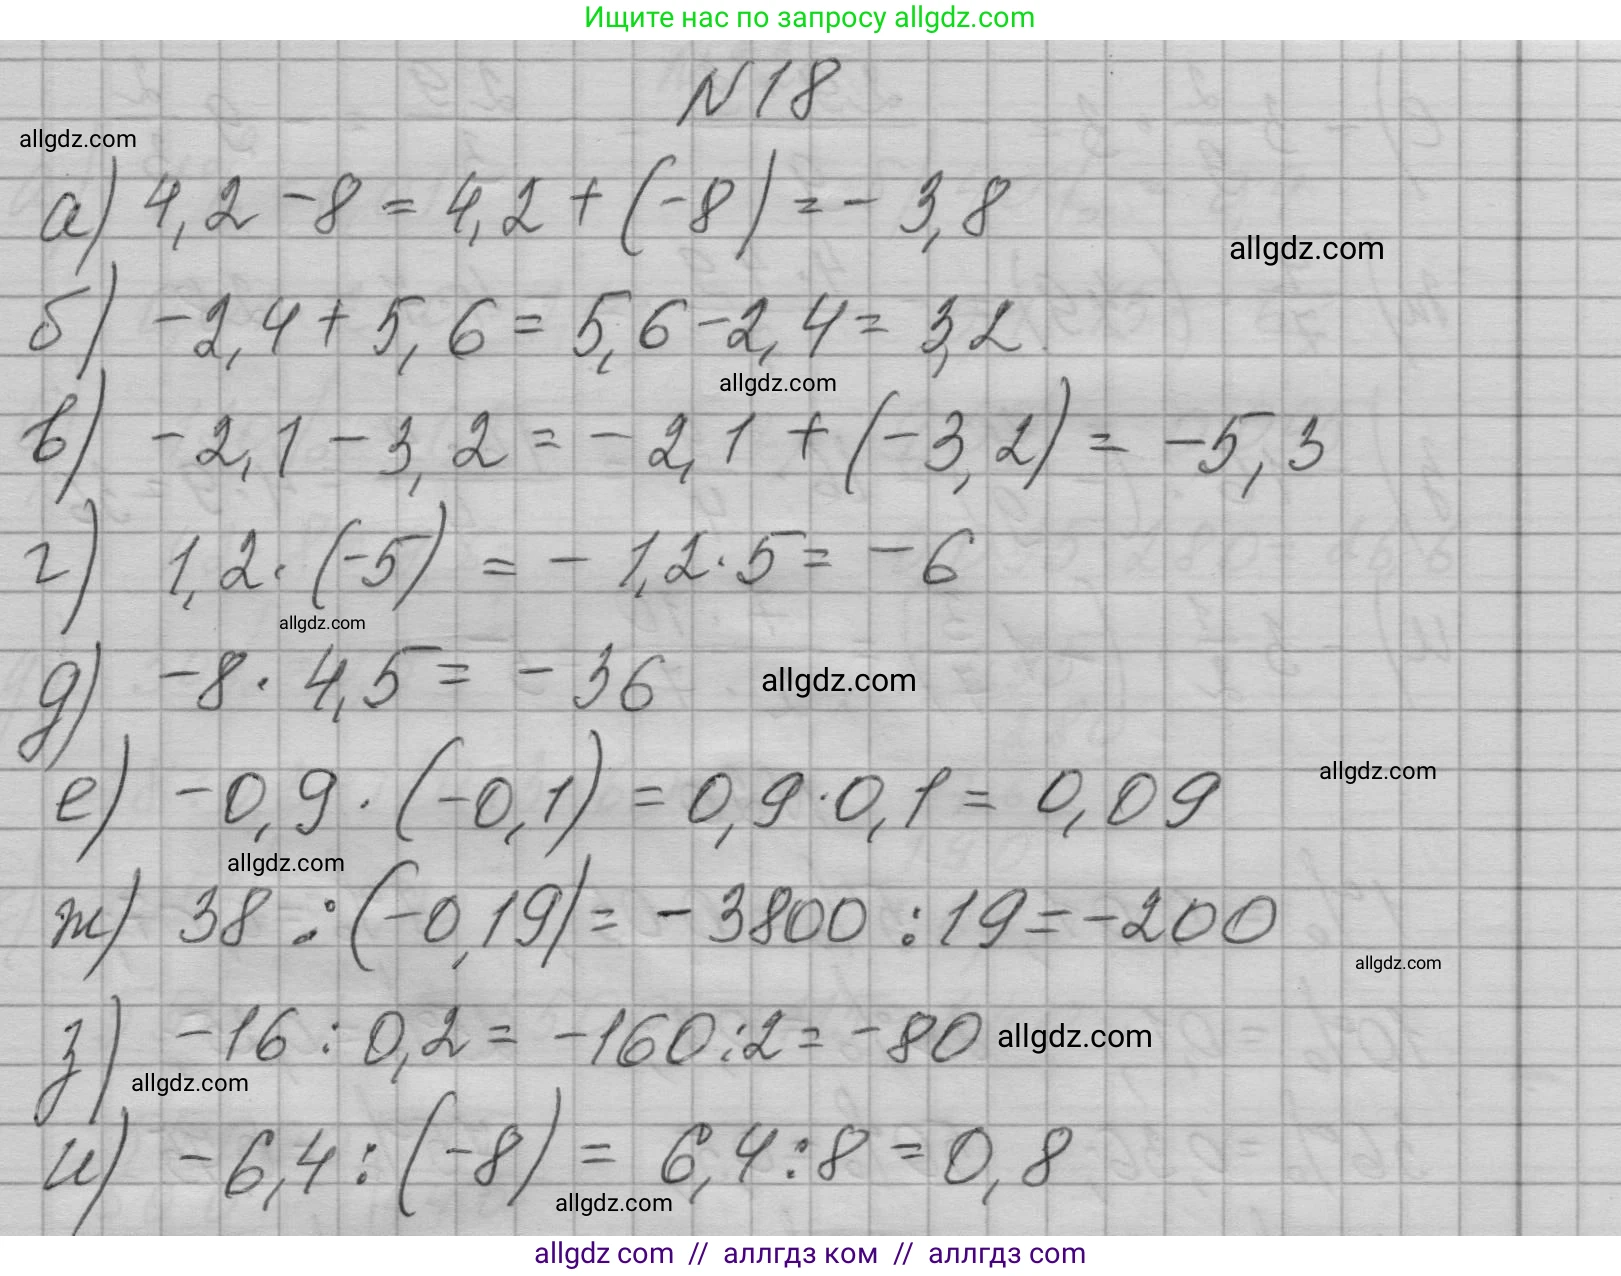 Ищите нас по запросу allgdz.com
N18
allgdz.com
а) 4,2 - 8 = 4,2 + (-8) = - 3,8
allgdz.com
б) -2,4 + 5,6 = 5,6 - 2,4 = 3,2
allgdz.com
в) -2,1 - 3,2 = -2,1 + (-3,2) = -5,3
г) 1,2 · (-5) = - 1,2 · 5 = -6
allgdz.com
д) -8 · 4,5 = - 36
allgdz.com
е) -0,9 · (-0,1) = 0,9 · 0,1 = 0,09
allgdz.com
allgdz.com
ж) 38 : (-0,19) = - 3800 : 19 = -200
allgdz.com
з) -16 : 0,2 = -160 : 2 = -80
allgdz.com
allgdz.com
и) -6,4 : (-8) = 6,4 : 8 = 0,8
allgdz.com
allgdz com // аллгдз ком // аллгдз.com